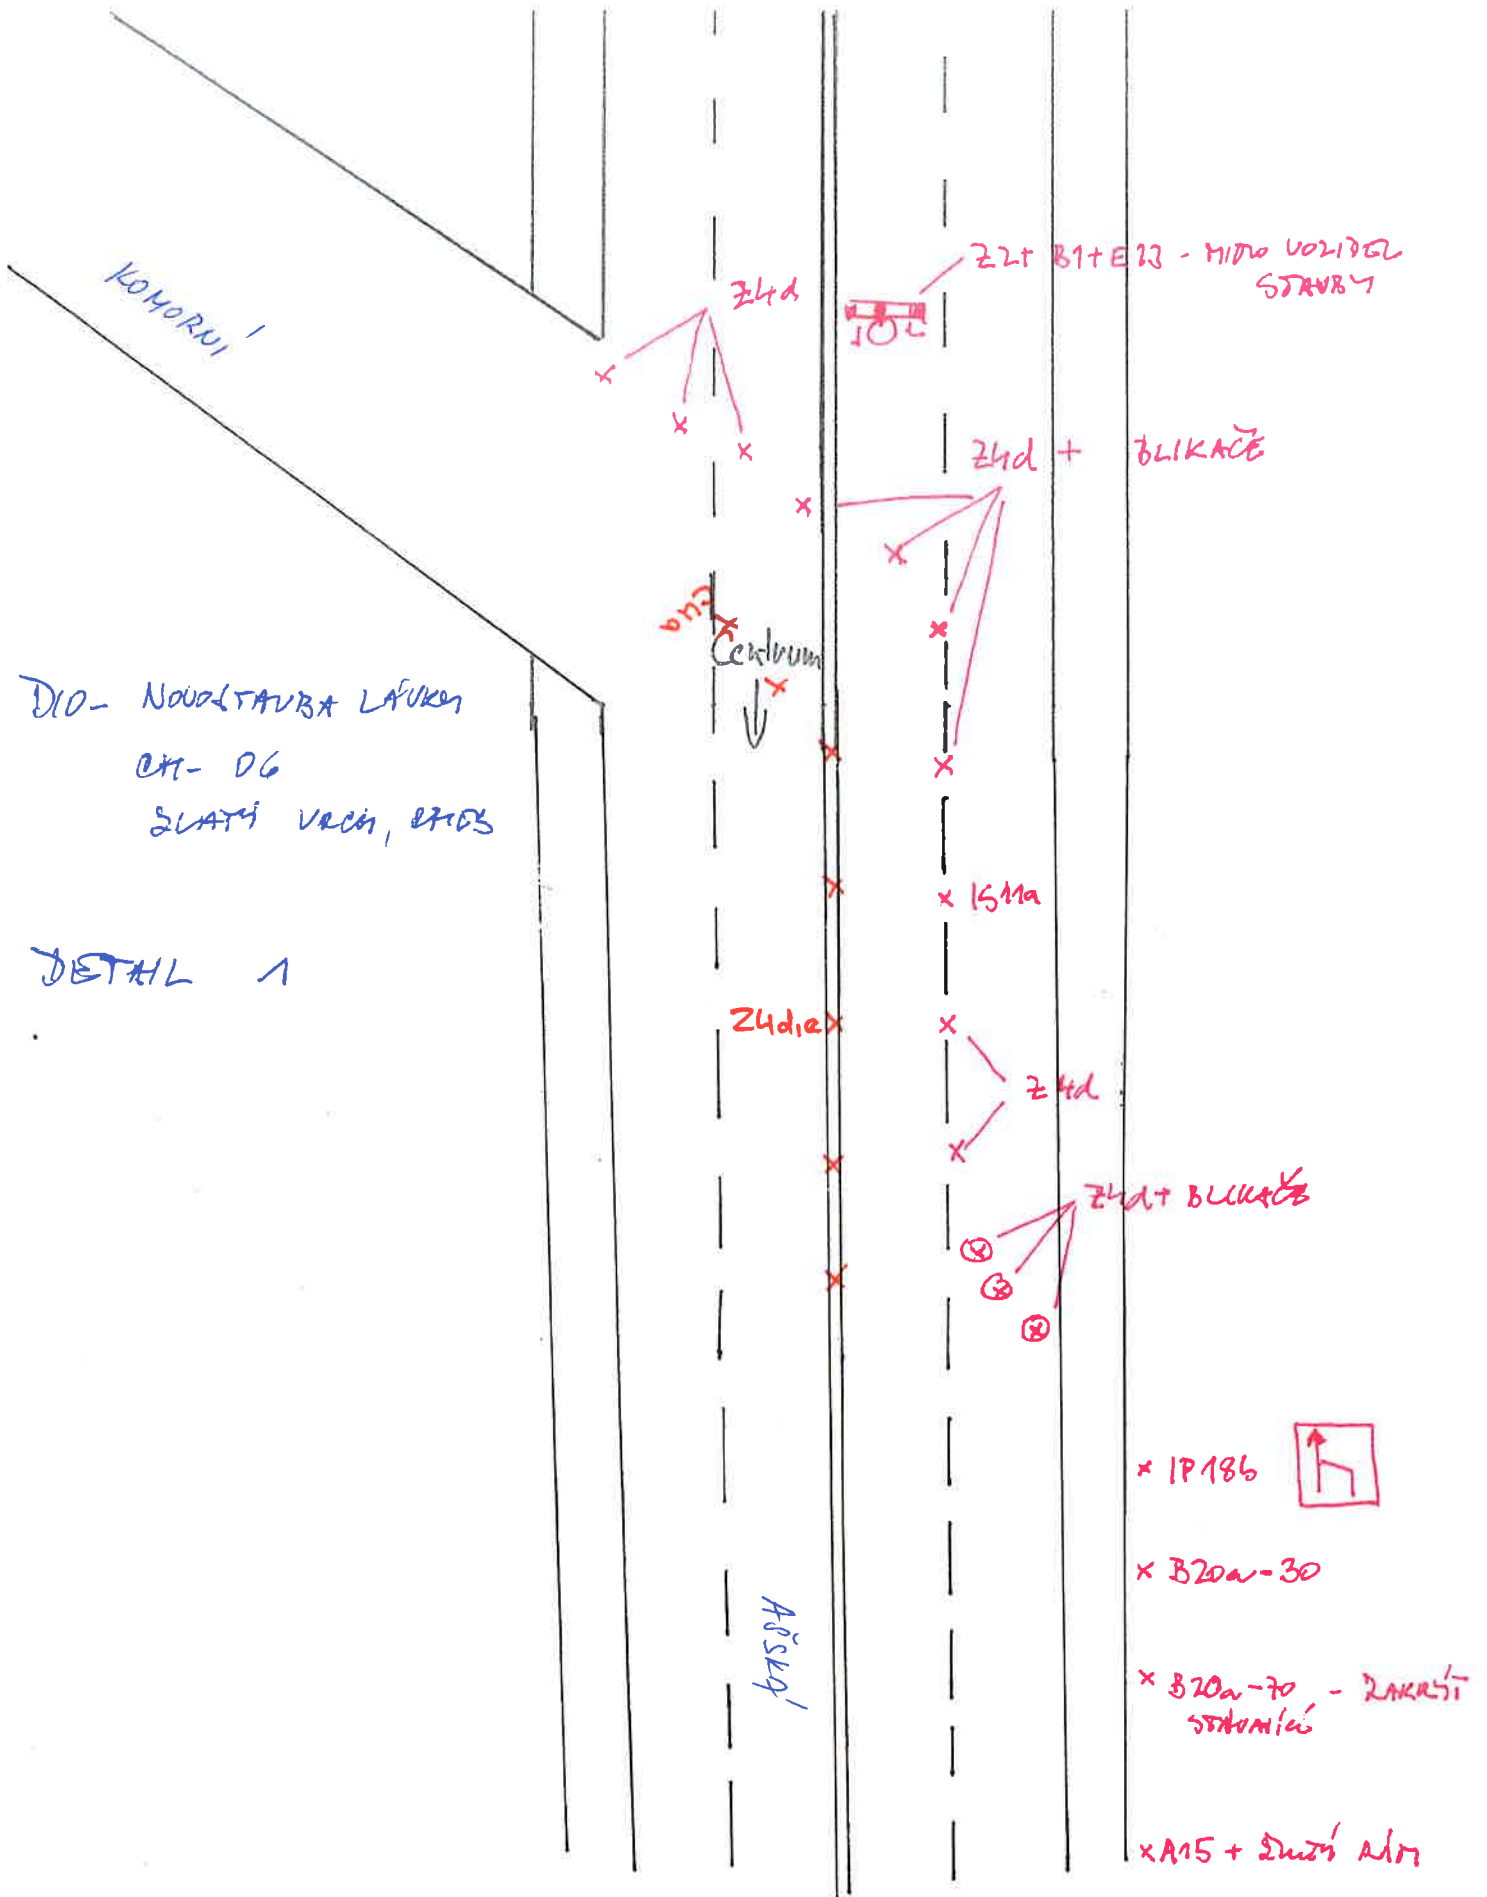 Z2+ B1+ E13 - MIMO VOZIDEL
STAVBY
KOMORNÍ
Z4d
Z4d + BLIKAČE
C4a
Centrum
DIO- NOVOSTAVBA LÁVKY
CH- D6
ZLATÝ VRCH, CHEB
IS11a
DETAIL 1
Z4d,e
Z4d
Z4d+ BLIKAČE
IP18b
B20a-30
AŠSKÁ
B20a-70 - ZAKRÝT
STÁVAJÍCÍ
A15 + ŽLUTÝ RÁM